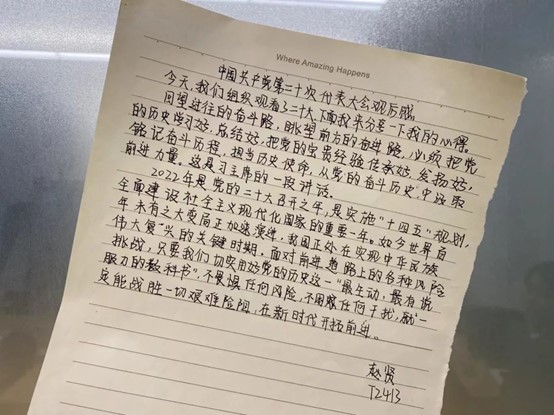 Where Amazing Happens
中国共产党第二十次代表大会观后感
今天,我们组织观看了二十大,下面我来分享一下我的心得。
回望过往的奋斗路,眺望前方的奋进路,必须把党
的历史学习好、总结好,把党的宝贵经验传承好、发扬好,
铭记奋斗历程,担当历史使命,从党的奋斗历史中汲取
前进力量。这是习主席的一段讲话。
2022年是党的二十大召开之年,是实施“十四五”规划,
全面建设社会主义现代化国家的重要一年。如今世界百
年未有之大变局正加速演进,我国正处在实现中华民族
伟大复兴的关键时期。面对前进道路上的各种风险
挑战,只要我们切实用好党的历史这一“最生动、最有说
服力的教科书”,不畏惧任何风险,不困惑任何干扰,就一
定能战胜一切艰难险阻,在新时代开拓前进。
赵贤
T2413